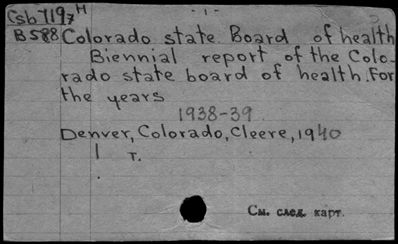 Csb 7197 H
- 1 -
B588 Colorado state Board of health
Biennial report of the Colo-
rado state board of health. For
the years
1938-39
Denver, Colorado, Cleere, 1940
1 т.
См. след. карт.